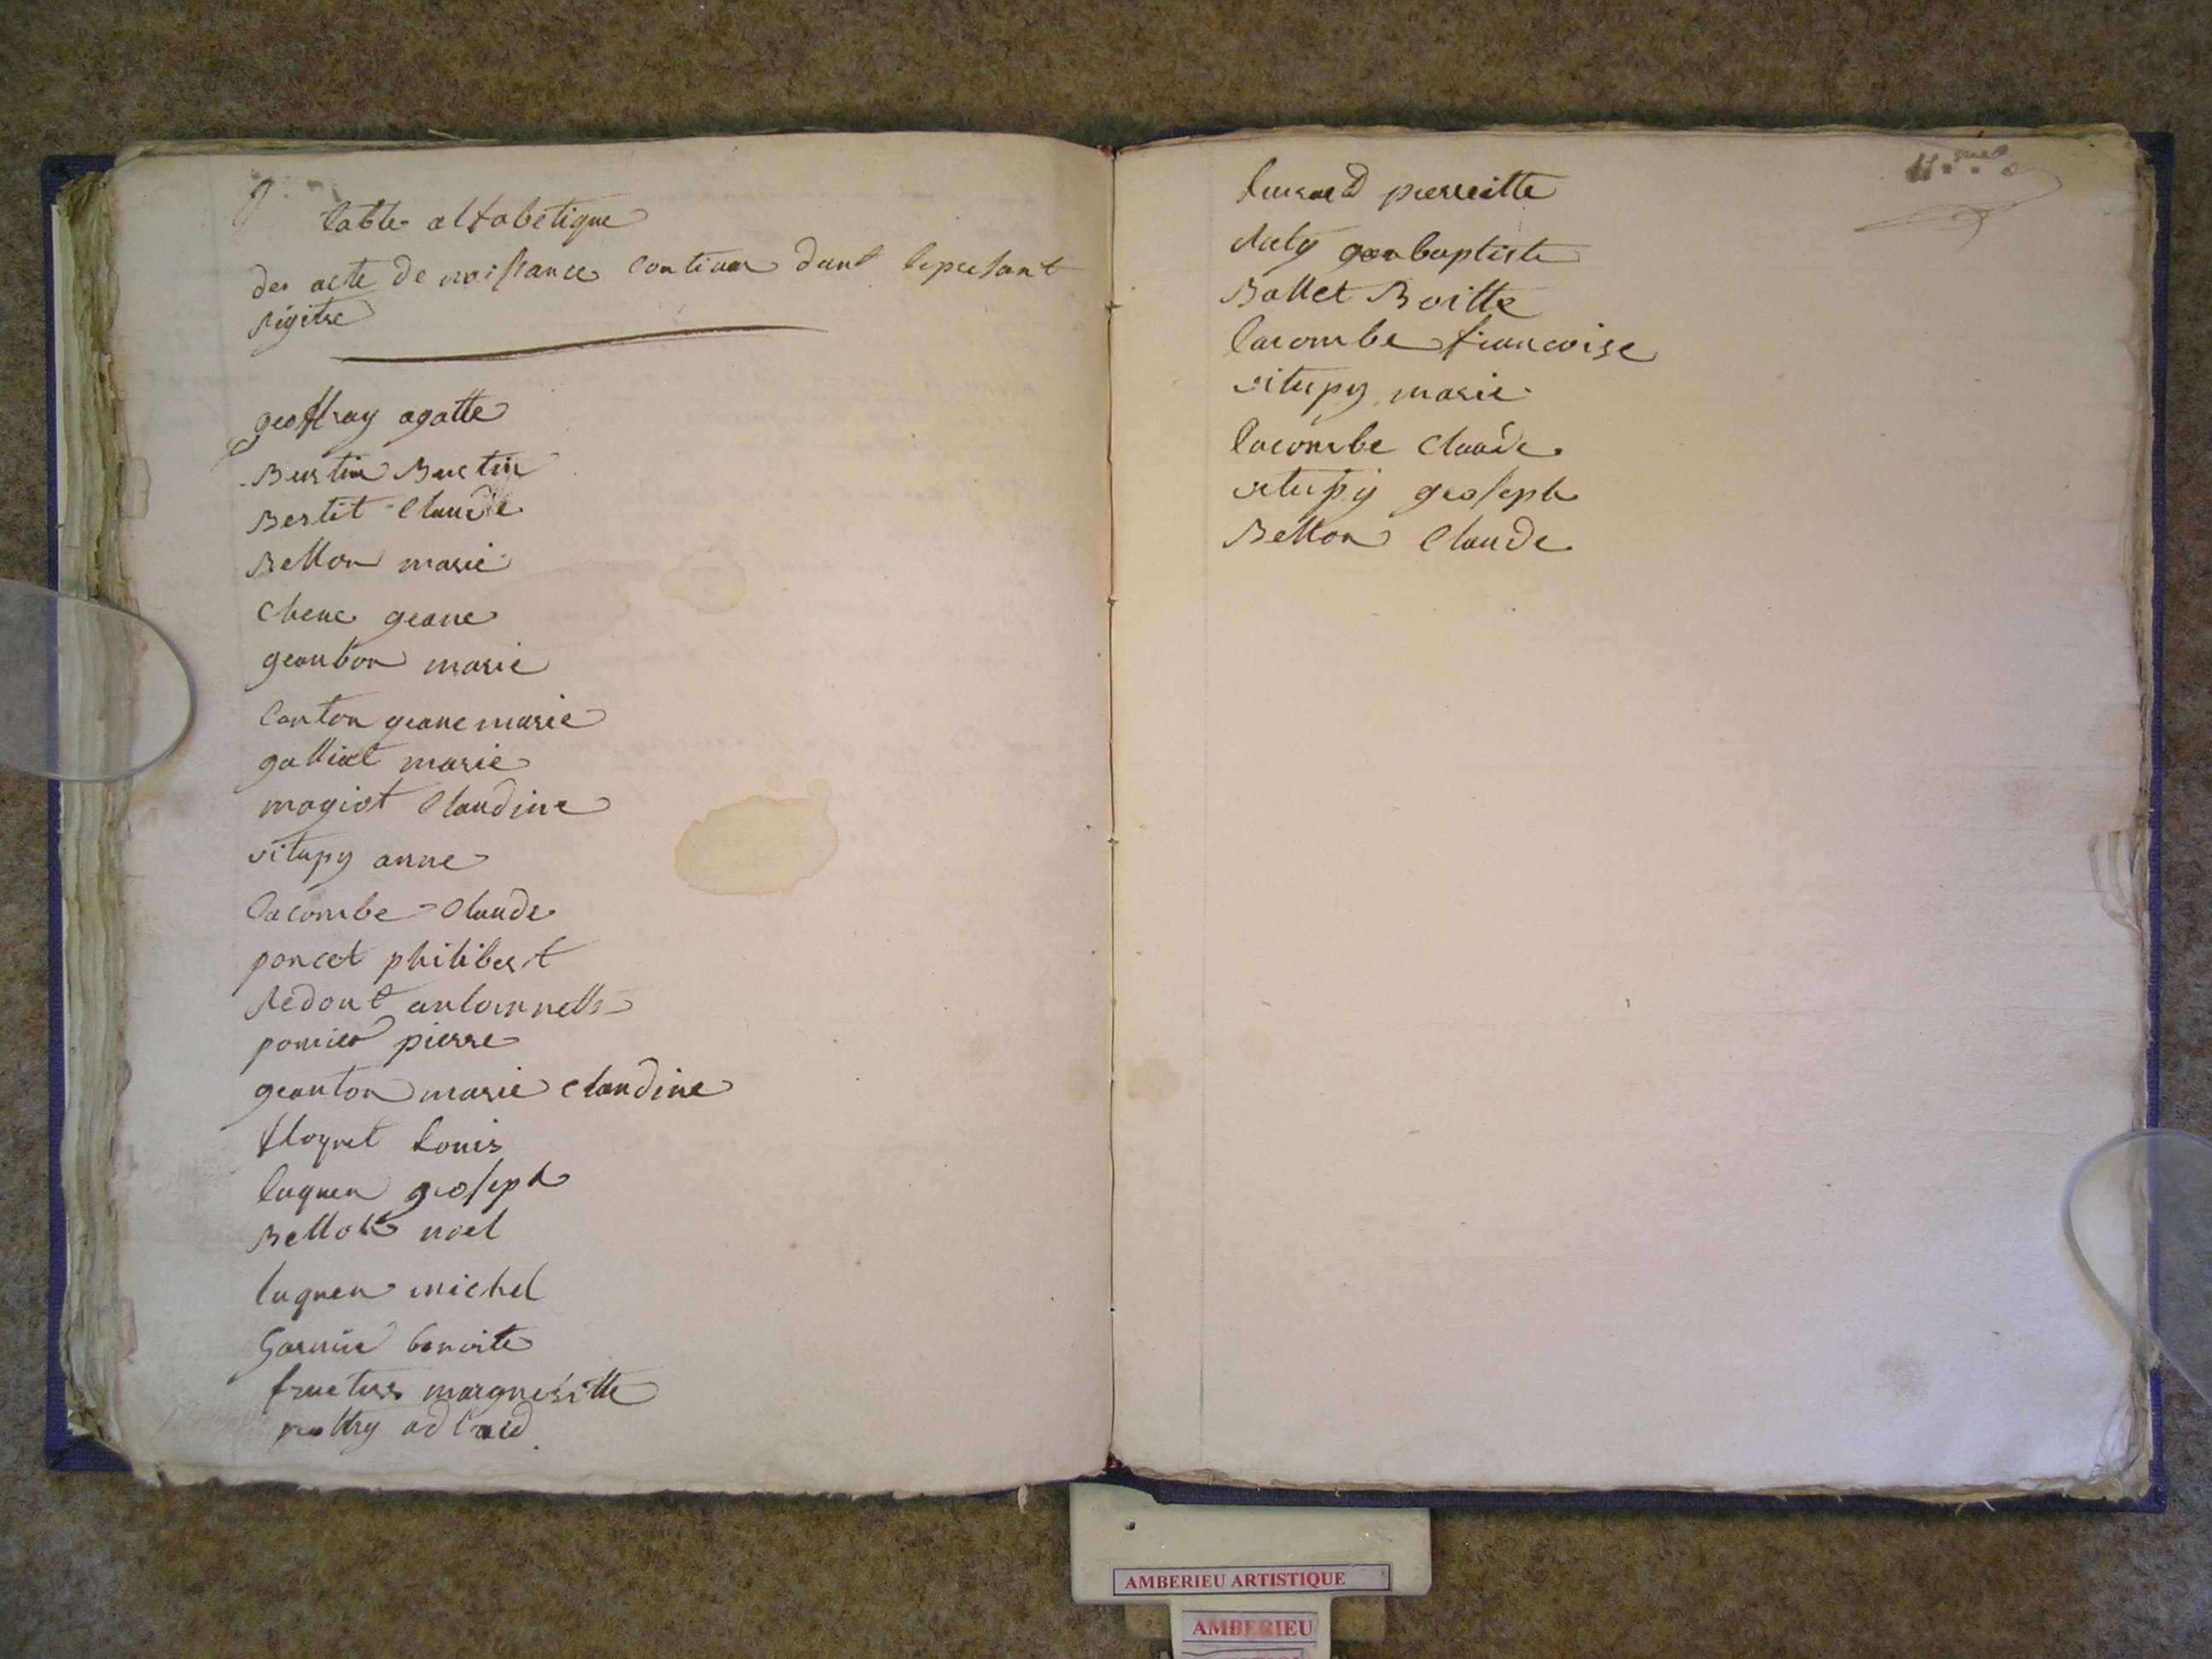 table alfabetique
des acte de naissance contienn dant lepresant
régitre
geoffray agatte
Burtin Burtin
Bertit Claude
Bellon marie
Chene geane
geanbon marie
Canton geane marie
galliat marie
magiot Claudine
vitupy anne
lacombe Claude
poncet philibert
Redout antoinnette
pomier pierre
geanton marie claudine
floquet Louis
luquen gioseph
Bellot noel
luquen michel
Garnier benoite
fructus margueritte
adlaid
11.me
pierreitte
gean baptiste
Ballet Boitte
lacombe francoise
vitupy marie
lacombe Claude
vitupy geoseph
Bellon Claude
AMBERIEU ARTISTIQUE
AMBERIEU